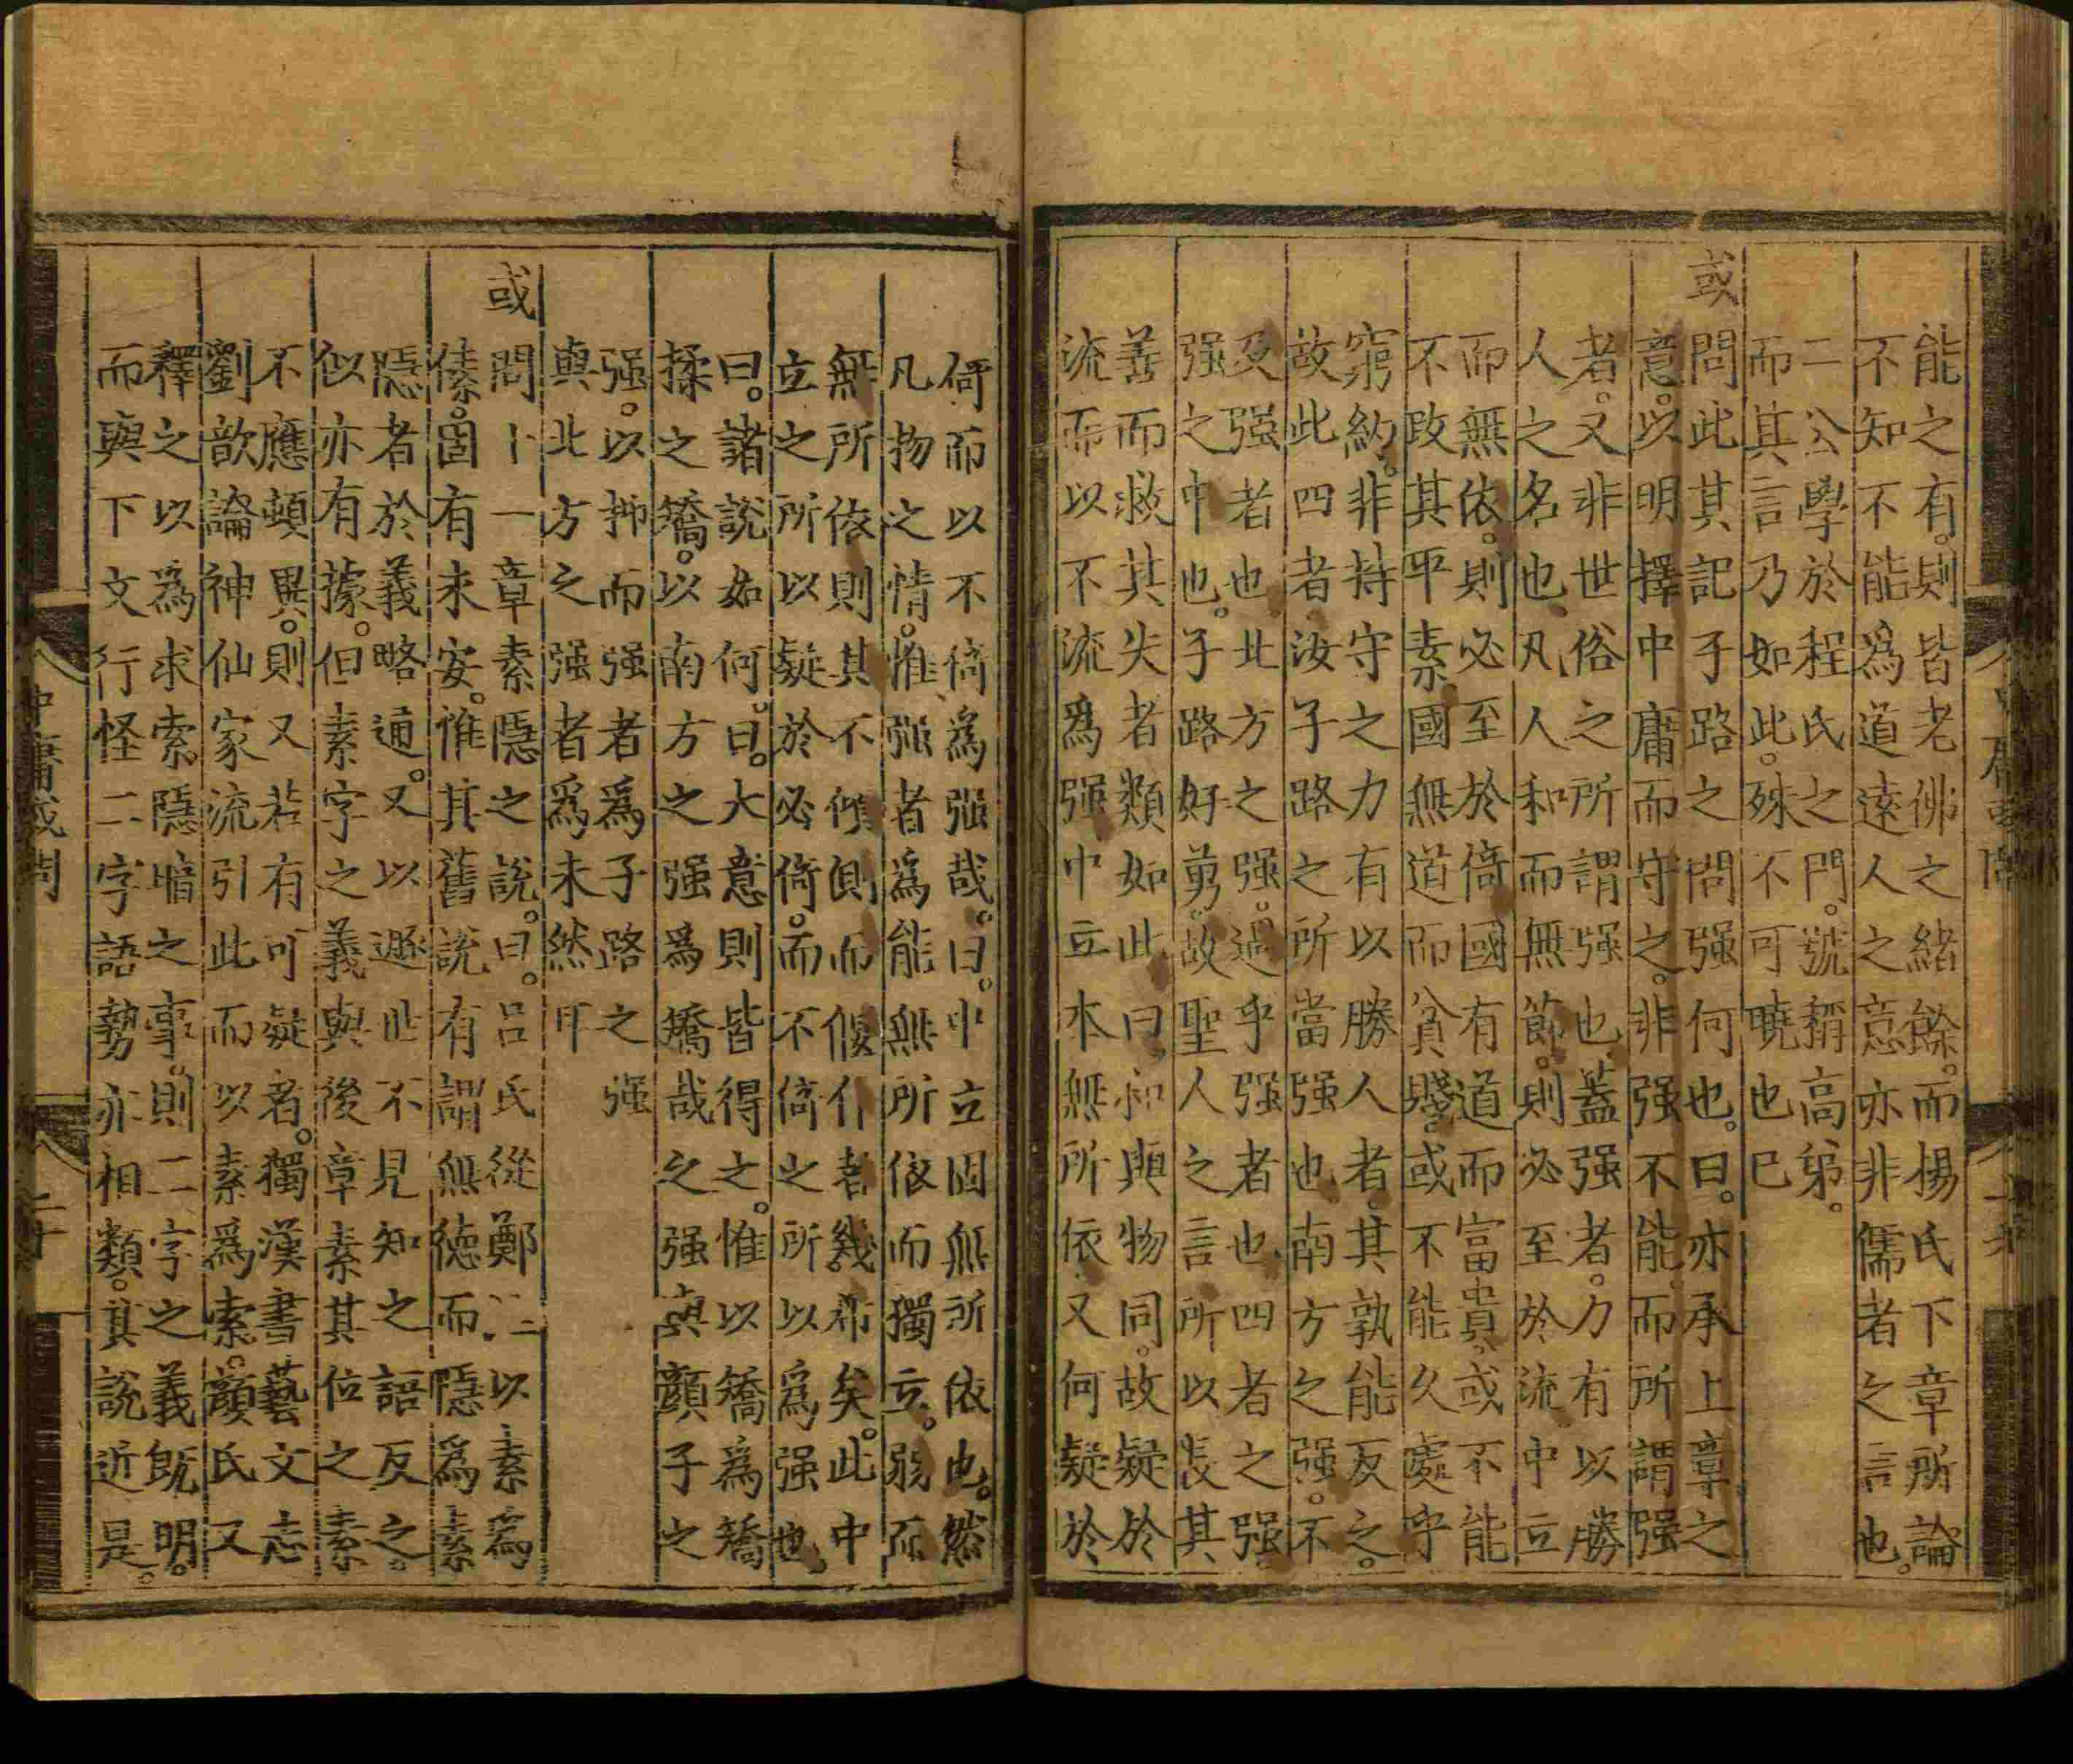 能之有。則皆老佛之緒餘。而楊氏下章所論
不知不能爲道遠人之意亦非儒者之言也。
二公學於程氏之門。號稱高弟。
而其言乃如此。殊不可曉也已
或問此其記子路之問强何也。曰。亦承上章之
意。以明擇中庸而守之。非强不能。而所謂强
者。又非世俗之所謂强也蓋强者。力有以勝
人之名也凡人和而無節。則必至於流中立
而無依。則必至於倚國有道而富貴或不能
不改其平素國無道而貧賤。或不能久處乎
窮約。非持守之力有以勝人者。其孰能反之。
故此四者汝子路之所當强也南方之强。不
及强者也北方之强。過乎强者也四者之强
强之中也。子路好勇。故聖人之言所以長其
善而救其失者類如此曰和與物同。故疑於
流而以不流爲强中立本無所依又何疑於
倚而以不倚爲强哉。曰。中立固無所依也。然
凡物之情。惟强者爲能無所依而獨立。弱而
無所依則其不傾側而偃仆者幾希矣。此中
立之所以疑於必倚。而不倚之所以爲强也
曰。諸說如何。曰。大意則皆得之。惟以矯爲矯
揉之矯。以南方之强爲矯哉之强與顏子之
强。以抑而强者爲子路之强
與北方之强者爲未然耳
或問十一章素隱之說。曰。呂氏從鄭註以素爲
傃。固有未安。惟其舊說有謂無德而隱爲素
隱者於義略通。又以遯世不見知之語反之。
似亦有據。但素字之義與後章素其位之素
不應頓異。則又若有可疑者。獨漢書藝文志
劉歆論神仙家流引此而以素爲索。顏氏又
釋之以爲求索隱暗之事。則二字之義旣明。
而與下文行怪二字語勢亦相類。其說近是。
中庸或問
二十